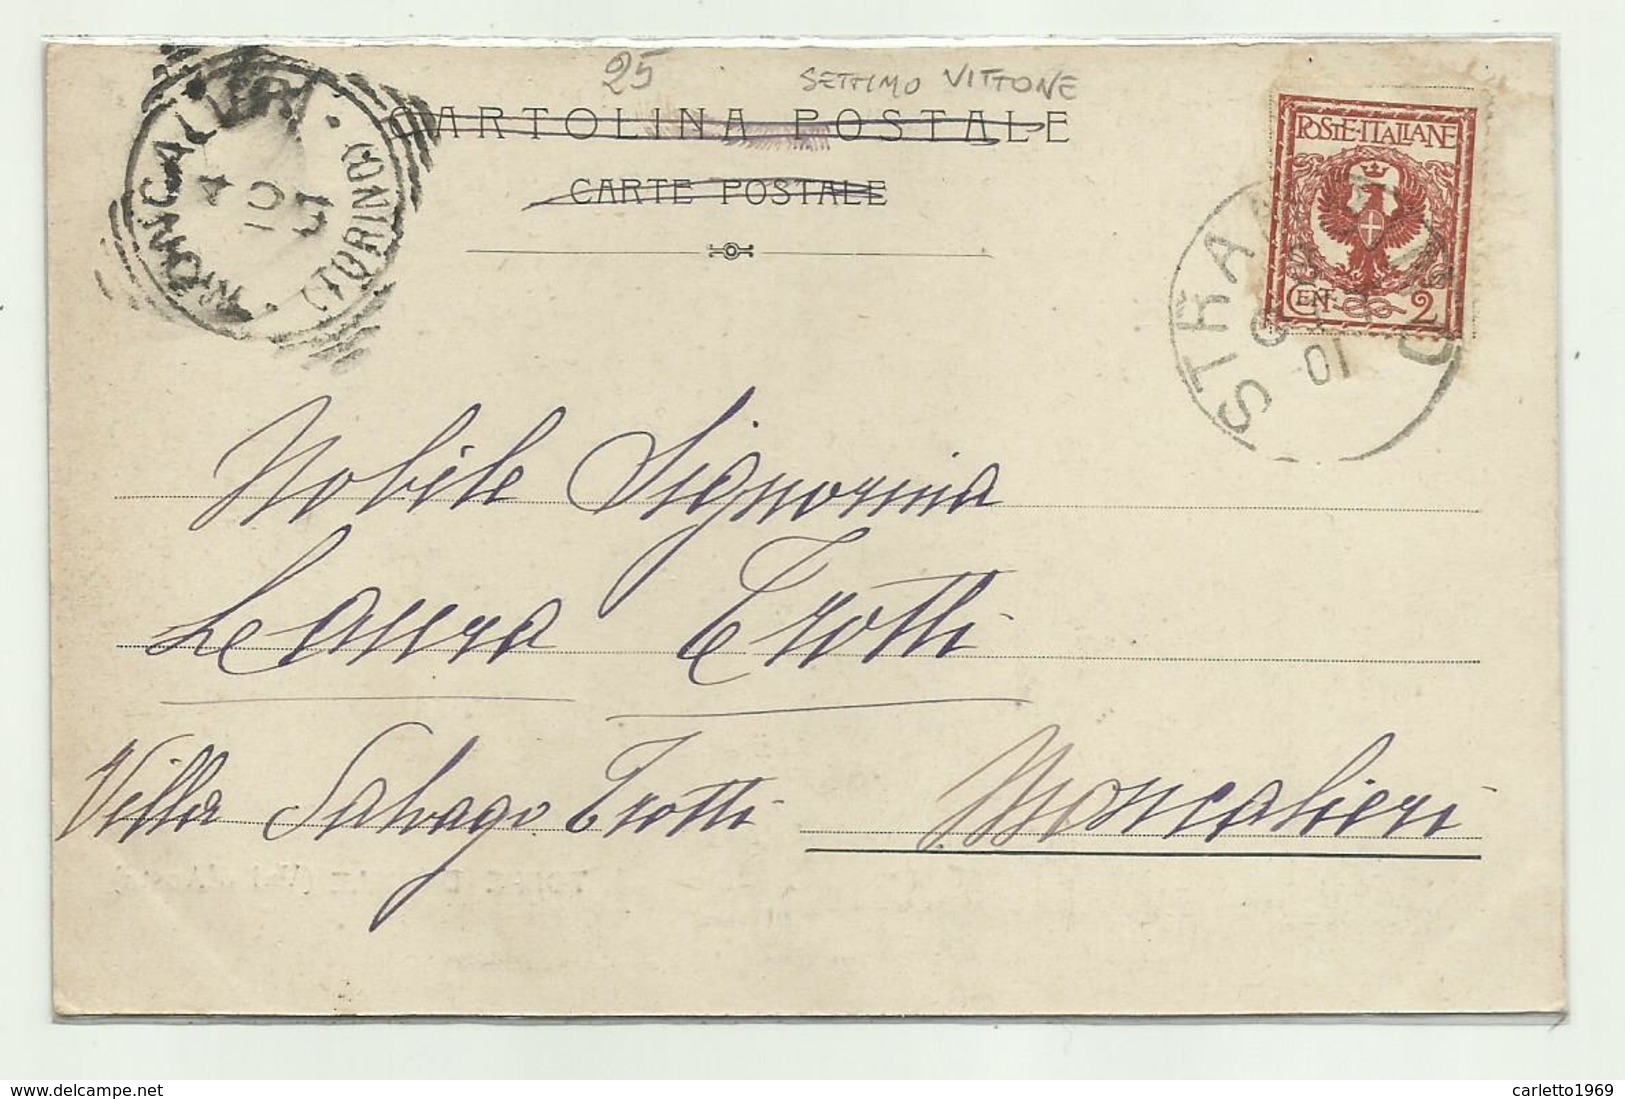 25 SETTIMO VITTONE
CARTOLINA POSTALE
CARTE POSTALE
MONCALIERI
(TORINO)
4 10 01
POSTE·ITALIANE
CEN· 2
01
Nobile Signorina
Laura Trotti
Villa Salvago Trotti Moncalieri
delcampe.net
carletto1969